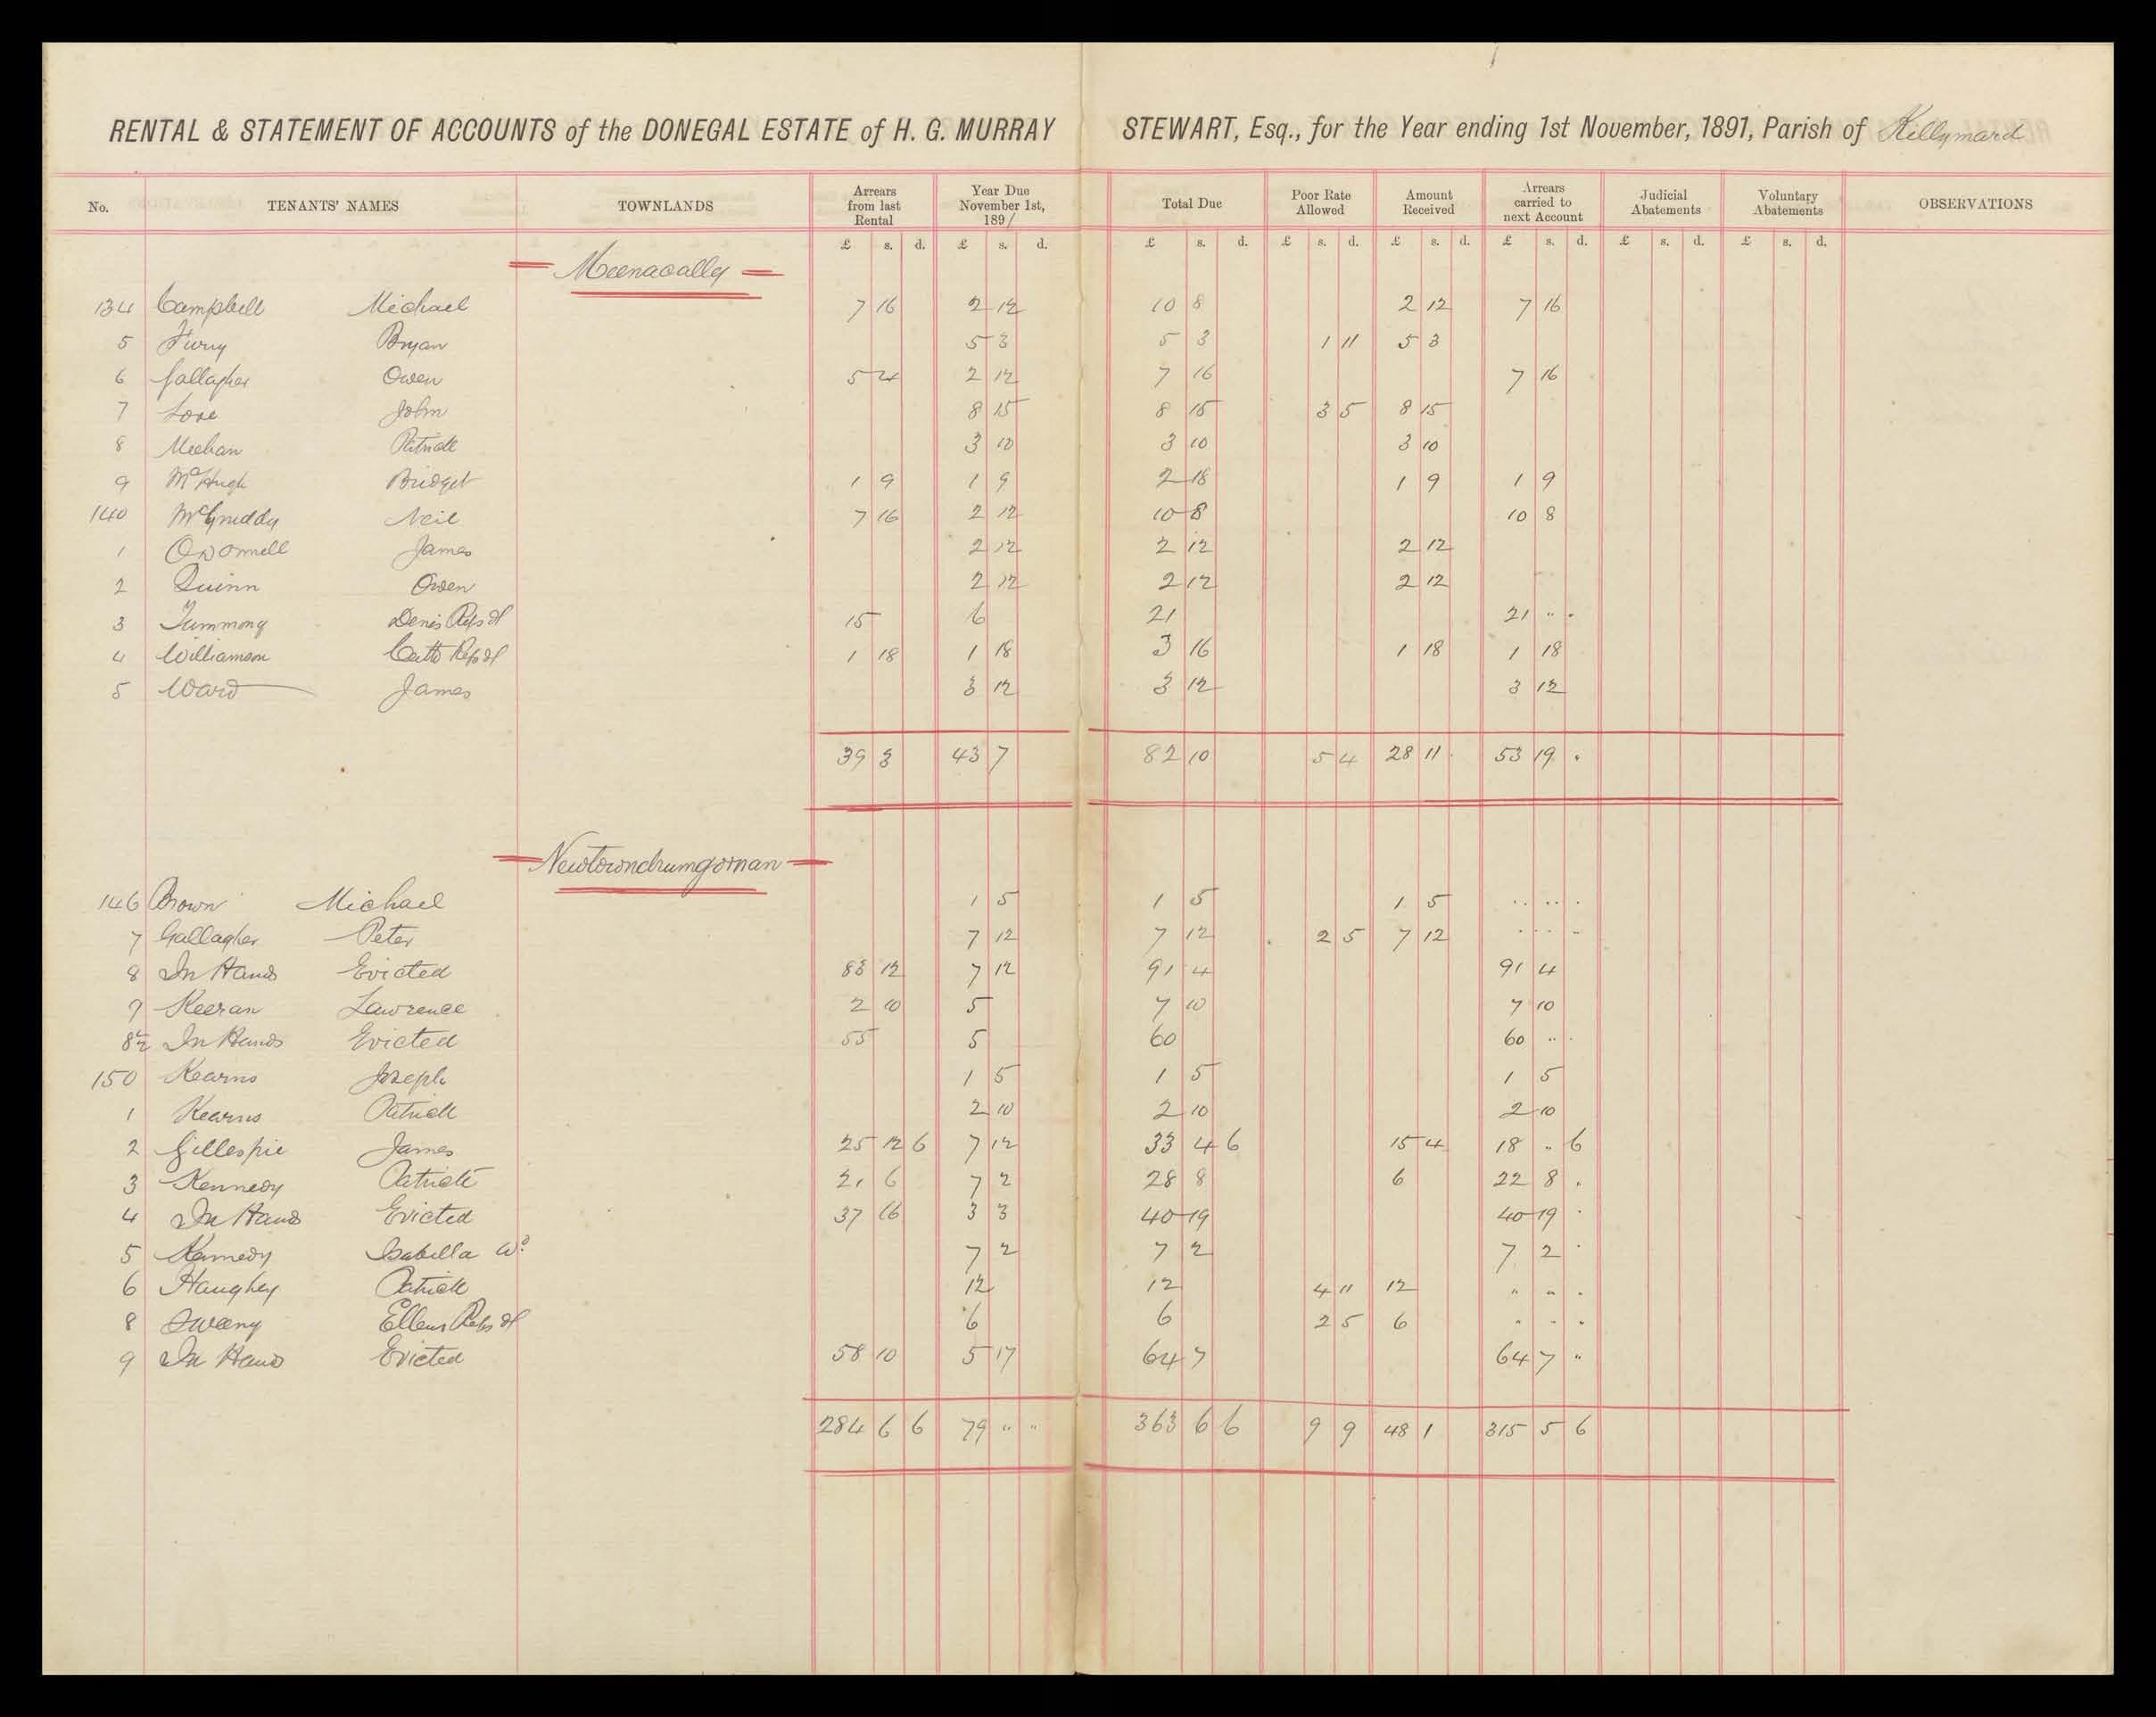 RENTAL & STATEMENT OF ACCOUNTS of the DONEGAL ESTATE of H. G. MURRAY STEWART, Esq., for the Year ending 1st November, 1891, Parish of Killymard
No. TENANTS' NAMES TOWNLANDS Arrears from last Rental Year Due November 1st, 1891 Total Due Poor Rate Allowed Amount Received Arrears carried to next Account Judicial Abatements Voluntary Abatements OBSERVATIONS
£ s. d. £ s. d. £ s. d. £ s. d. £ s. d. £ s. d. £ s. d. £ s. d.
Meenacally
134 Campbell Michael 7 16 2 12 10 8 2 12 7 16
5 Furry Bryan 5 3 5 3 1 11 5 3
6 Gallagher Owen 5 4 2 12 7 16 7 16
7 Love John 8 15 8 15 3 5 8 15
8 Meehan Patrick 3 10 3 10 3 10
9 McHugh Bridget 1 9 1 9 2 18 1 9 1 9
140 McGroddy Neil 7 16 2 12 10 8 10 8
1 ODonnell James 2 12 2 12 2 12
2 Quinn Owen 2 12 2 12 2 12
3 Tummony Denis Reps of 15 6 21 21 " "
4 Williamson Catte Reps of 1 18 1 18 3 16 1 18 1 18
5 Ward James 3 12 3 12 3 12
39 3 43 7 82 10 5 4 28 11 53 19 .
Newtowndrumgorman
146 Brown Michael 1 5 1 5 1 5 " " "
7 Gallagher Peter 7 12 7 12 2 5 7 12 " " "
8 In Hands Evicted 83 12 7 12 91 4 91 4
9 Keeran Lawrence 2 10 5 7 10 7 10
8½ In Hands Evicted 55 5 60 60 " .
150 Kearns Joseph 1 5 1 5 1 5
1 Kearns Patrick 2 10 2 10 2 10
2 Gillespie James 25 12 6 7 12 33 4 6 15 4 18 " 6
3 Kennedy Patrick 21 6 7 2 28 8 6 22 8 .
4 In Hands Evicted 37 16 3 3 40 19 40 19 .
5 Kennedy Isabella Wd 7 2 7 2 7 2 .
6 Haughey Patrick 12 12 4 11 12 " " "
8 Sweeny Ellen Reps of 6 6 2 5 6 " " "
9 In Hands Evicted 58 10 5 17 64 7 64 7 "
284 6 6 79 " " 363 6 6 9 9 48 1 315 5 6